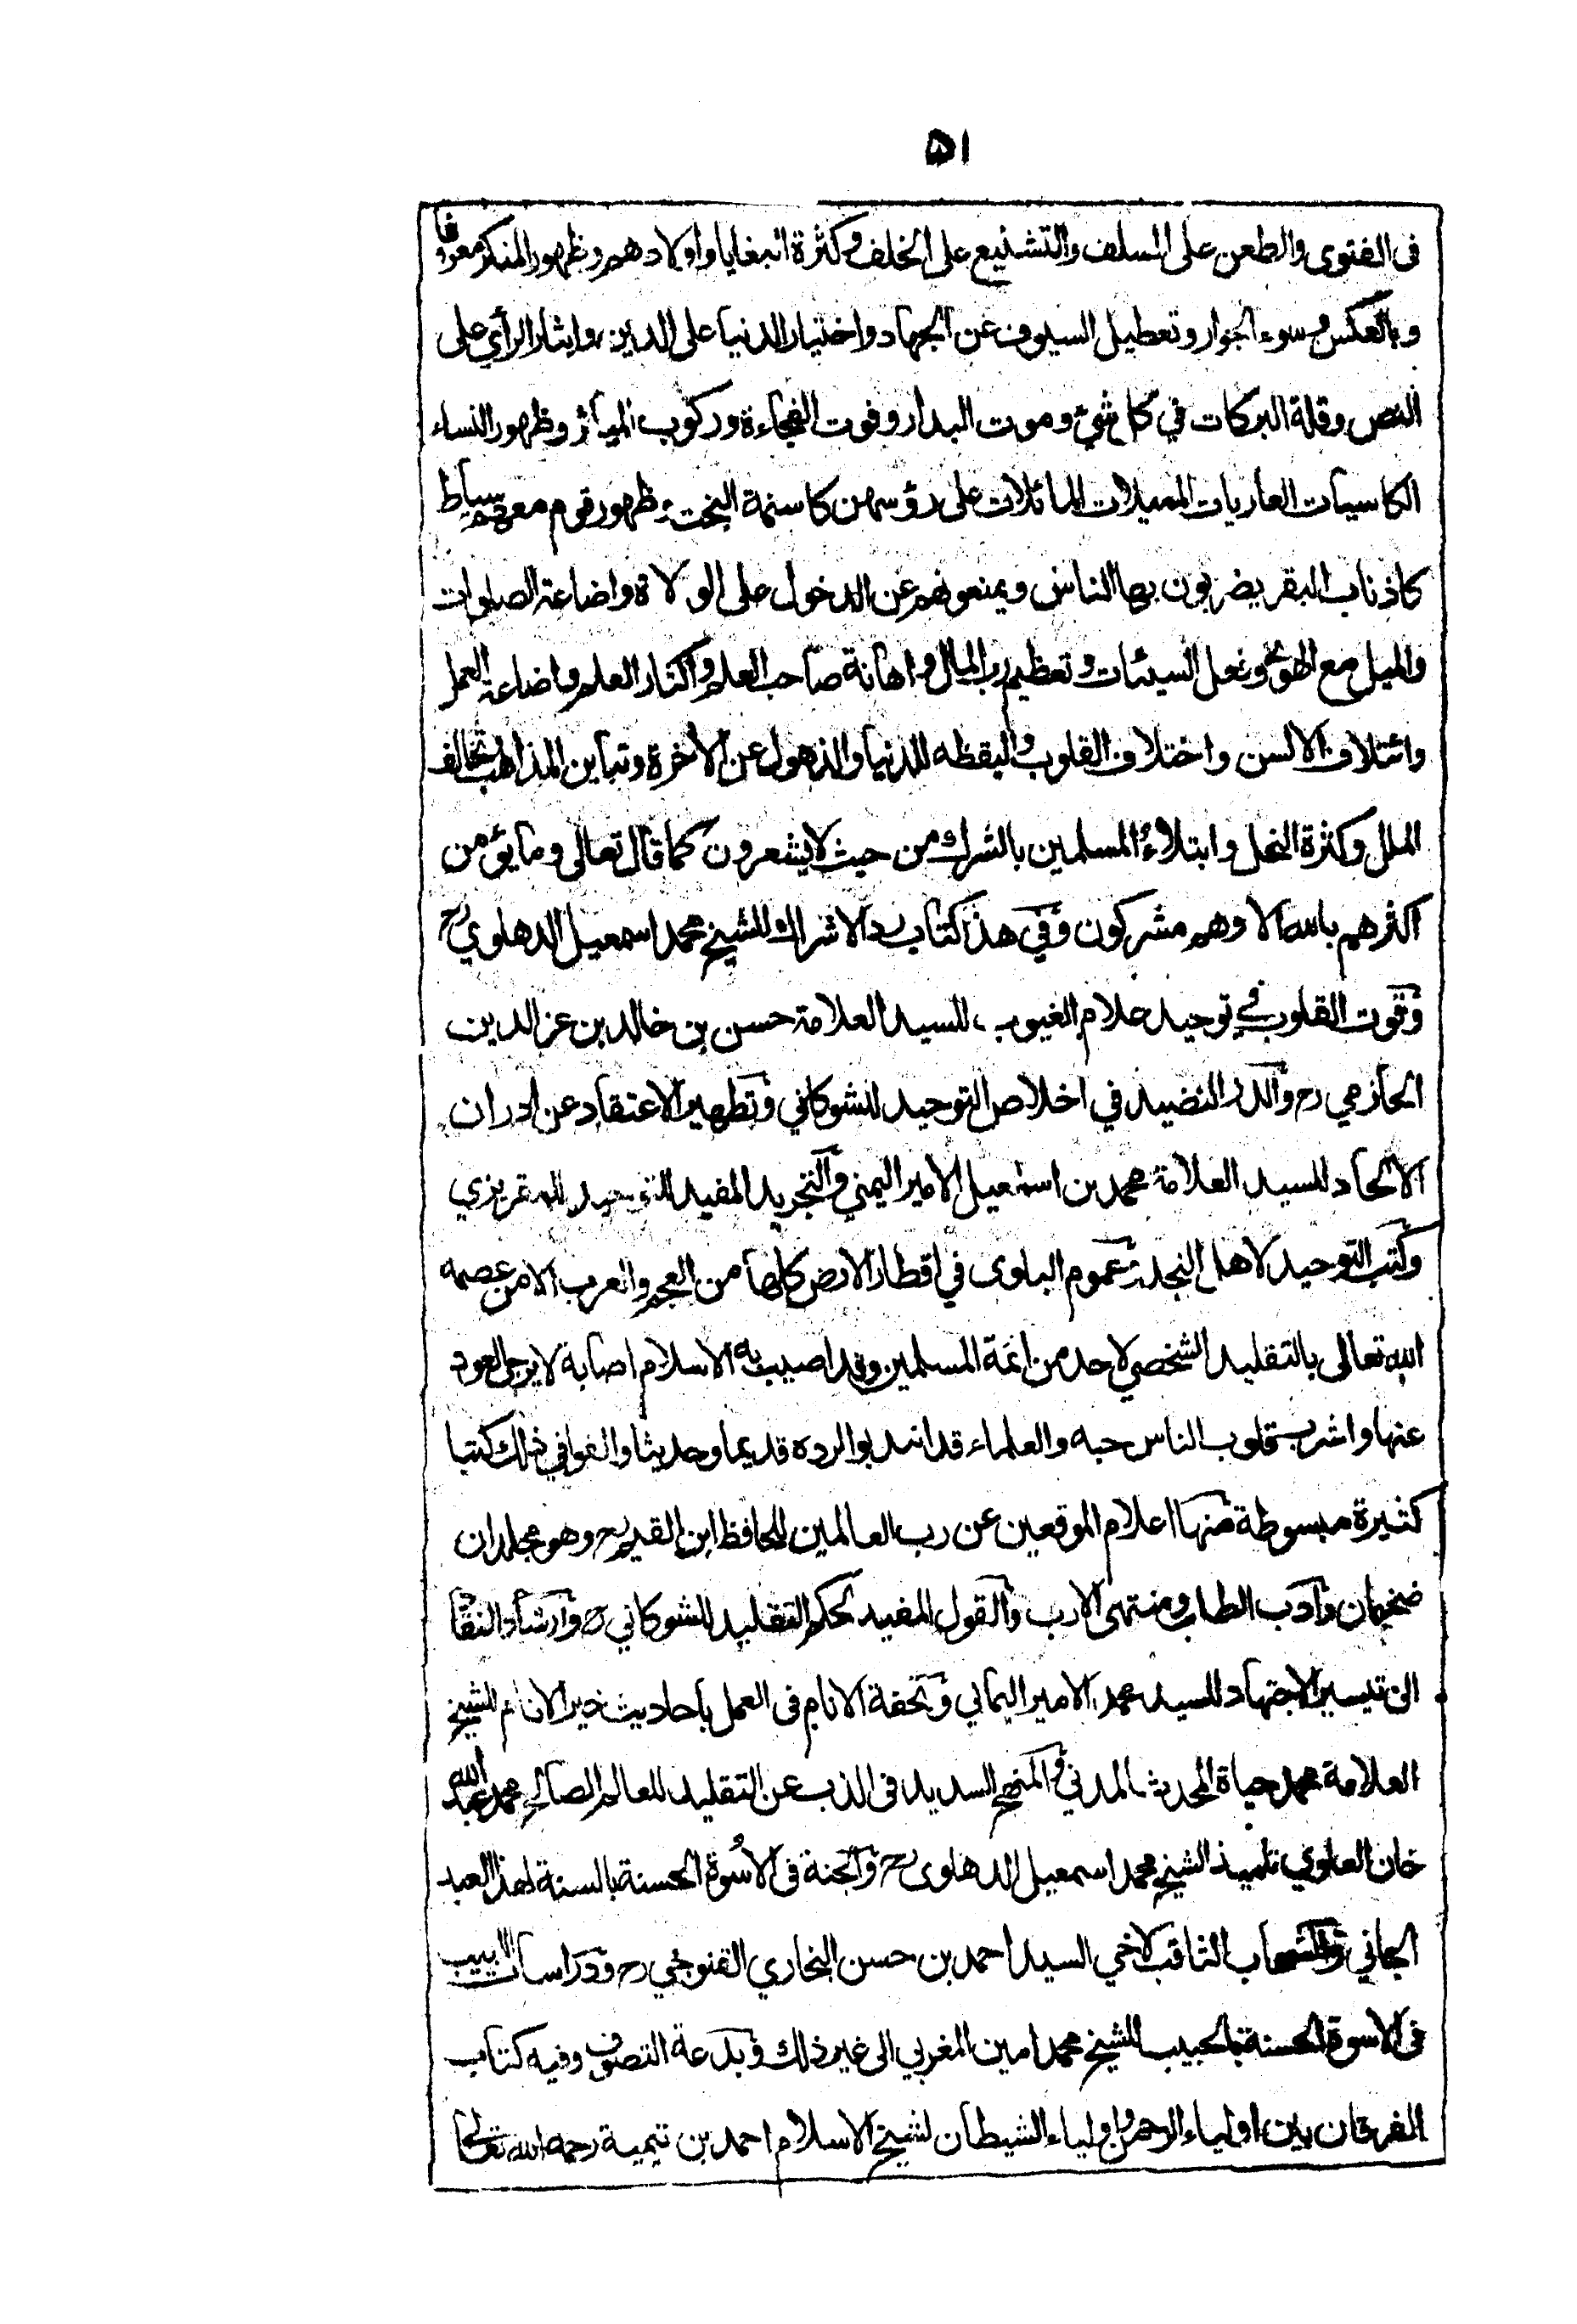 ٥١
فى الفتوى والطعن على السلف والتشنيع على الخلف وكثرة البغايا واولادهم وظهور المنكر معروفا
وبالعكس وسوء الجوار وتعطيل السيوف عن الجهاد واختيار الدنيا على الدين وايثار الرأي على
النص وقلة البركات في كل شيء وموت البدار وفوت الفجاءة وركوب المياثر وظهور النساء
الكاسيات العاريات المميلات المائلات على رؤسهن كاسنمة البخت وظهور قوم معهم سياط
كاذناب البقر يضربون بها الناس ويمنعونهم عن الدخول على الولاة واضاعة الصلوات
والميل مع الهوى وفعل السيئات وتعظيم رب المال واهانة صاحب العلم واكثار العلم واضاعة العمل
وائتلاف الالسن واختلاف القلوب واليقظه للدنيا والذهول عن الاخرة وتباين المذاهب وتخالف
الملل وكثرة النحل وابتلاء المسلمين بالشرك من حيث لا يشعرون كما قال تعالى وما يؤمن
اكثرهم بالله الا وهم مشركون وفي هذا كتاب رد الاشراك للشيخ محمد اسمعيل الدهلوي رح
وقوت القلوب في توحيد علام الغيوب للسيد العلامة حسن بن خالد بن عز الدين
الحازمي رح والدر النضيد في اخلاص التوحيد للشوكاني وتطهير الاعتقاد عن ادران
الالحاد للسيد العلامة محمد بن اسمعيل الامير اليمني والتجريد المفيد للتوحيد للمقريزي
وكتب التوحيد لاهل النجد وعموم البلوى في اقطار الارض كلها من العجم والعرب الا من عصمه
الله تعالى بالتقليد الشخصي لاحد من ائمة المسلمين وقد اصيب به الاسلام اصابة لا يرجى العود
عنها واشرب قلوب الناس حبه والعلماء قد انتدبوا لرده قديما وحديثا والفوا في ذلك كتبا
كثيرة مبسوطة منها اعلام الموقعين عن رب العالمين للحافظ ابن القيم رح وهو مجلدان
ضخيمان وادب الطلب ومنتهى الارب والقول المفيد لحكم التقليد للشوكاني رح وارشاد النقاد
الى تيسير الاجتهاد للسيد محمد الامير اليماني وتحفة الانام فى العمل باحاديث خير الانام للشيخ
العلامة محمد حياة المحدث المدني والمنهج السديد فى الذب عن التقليد للعالم الصالح محمد عبد الله
خان العلوي تلميذ الشيخ محمد اسمعيل الدهلوى رح والجنة فى الاسوة الحسنة بالسنة لهذا العبد
الجاني والشهاب الثاقب لاخي السيد احمد بن حسن البخاري القنوجي رح ودراسات اللبيب
فى الاسوة الحسنة بالحبيب للشيخ محمد امين المغربي الى غير ذلك وبدعة التصوف وفيه كتاب
الفرقان بين اولياء الرحمن واولياء الشيطان لشيخ الاسلام احمد بن تيمية رحمه الله تعالى